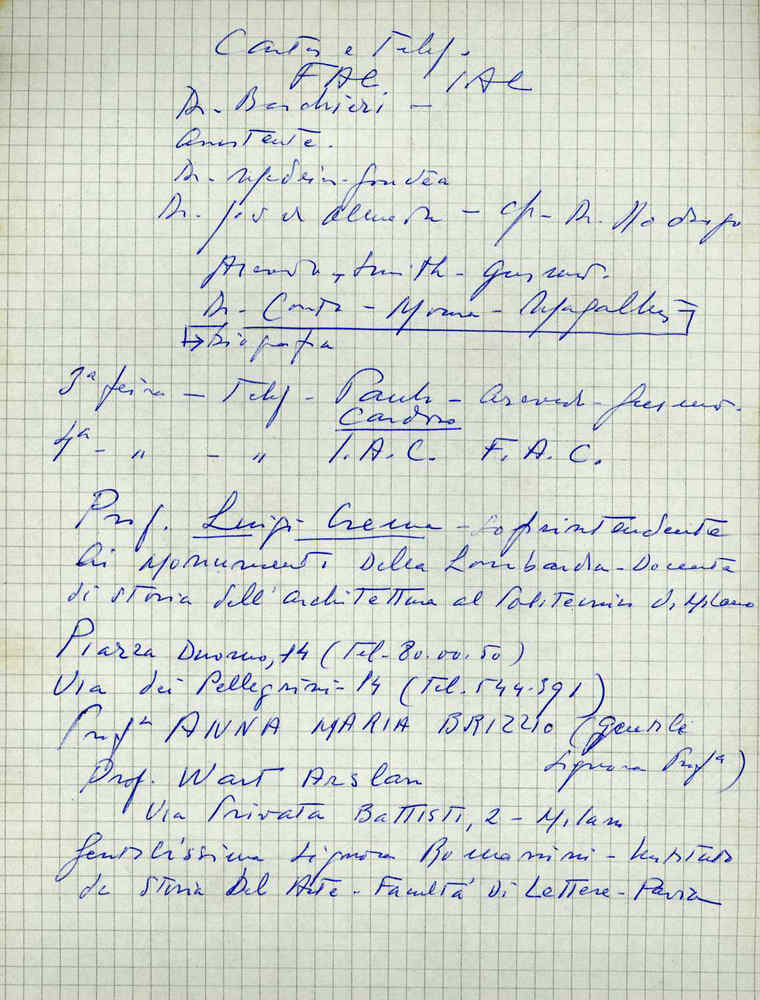 Cartas e Telef.
FAC IAC
Dr. Barchieri –
Assistente.
Dr. Medeiros-Gouvêa
Dr. de Almeida – c/- Dr. Rodrigo
Azevedo, Smith – Gusmão.
Dr. Couto – Moura – Magalhães
Biografia
3ª feira – Telef – Paulo – Azevedo – Gusmão.
Cardoso
4ª – " – " I.A.C. F.A.C.
Prof. Luigi Crema – Soprintendente
Ai Monumenti Della Lombardia – Docente
di storia dell'architettura al Politecnico di Milano
Piazza Duomo, 14 (Tel. 80.00.50)
Via dei Pellegrini – 14 (Tel. 544.591)
Profª ANNA MARIA BRIZZIO (gentile
Signora Profª)
Prof. Wart Arslan
Via Privata Battisti, 2 – Milano
Gentilissima Signora Romanini – Instituto
da Storia Del Arte – Facultá Di Lettere – Pavia